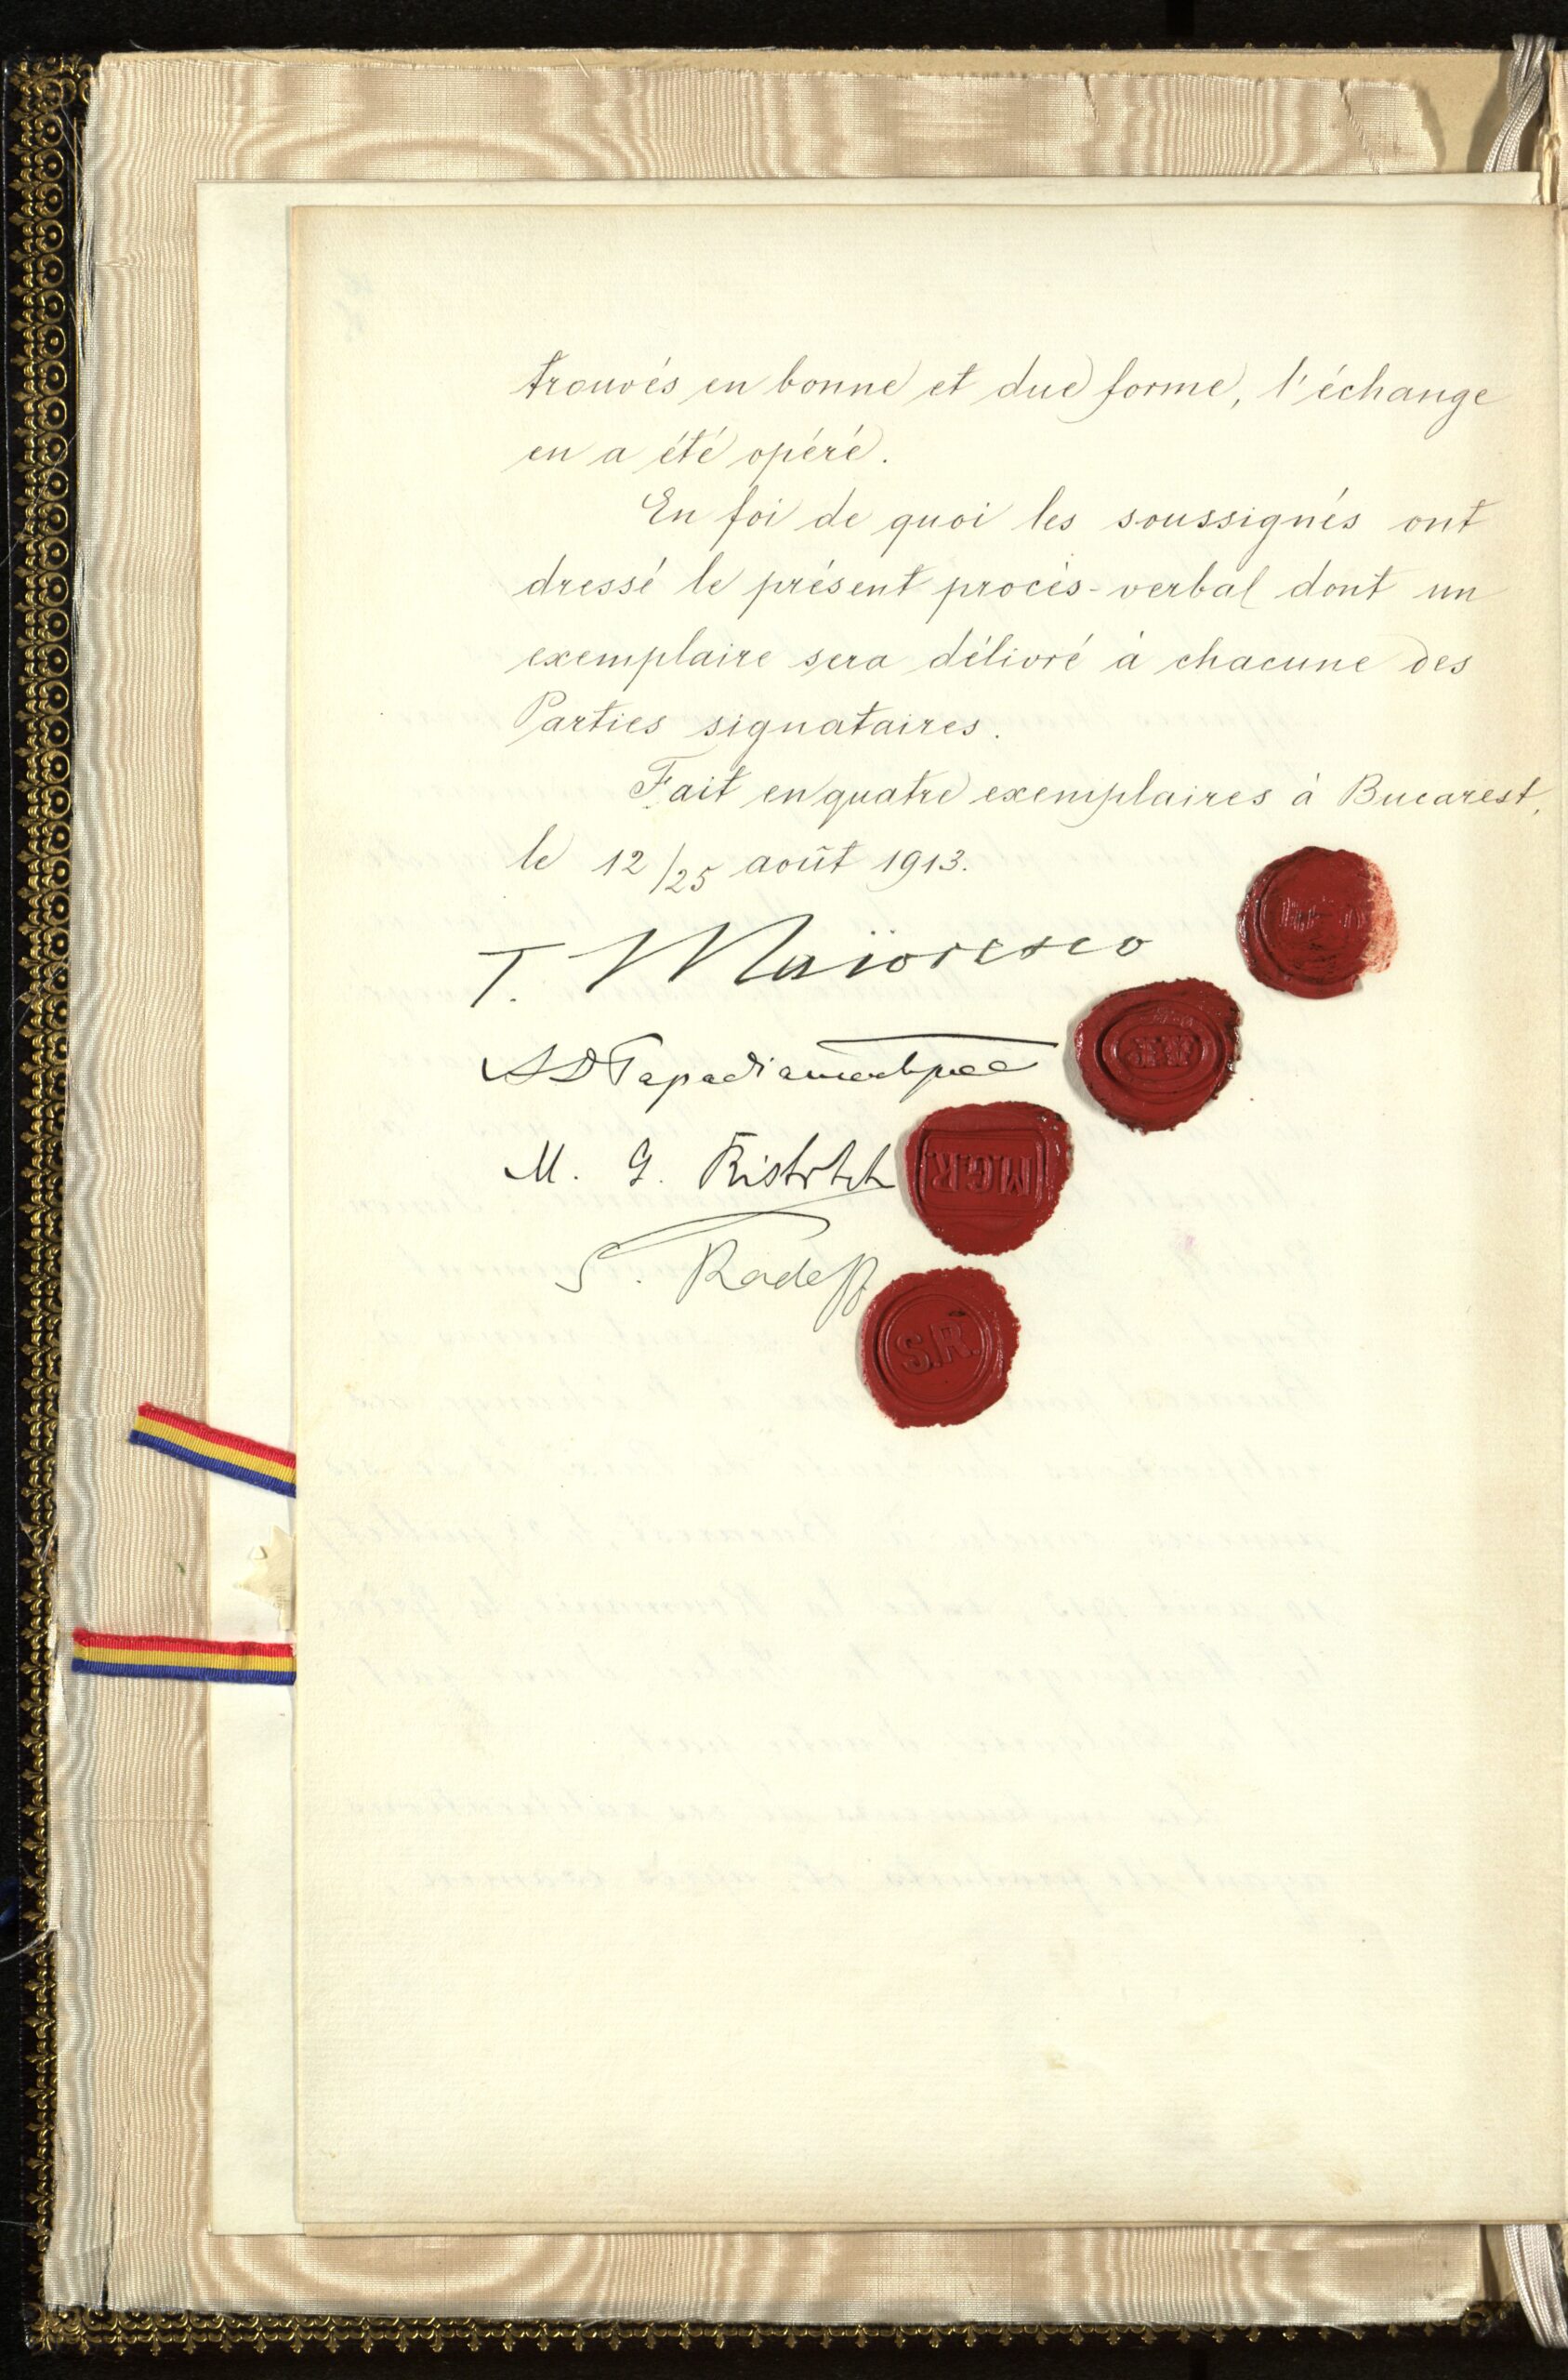 trouvés en bonne et due forme, l'échange
en a été opéré.
En foi de quoi les soussignés ont
dressé le présent procès-verbal dont un
exemplaire sera délivré à chacune des
Parties signataires.
Fait en quatre exemplaires à Bucarest,
le 12/25 août 1913.
T. Maïoresco
M. G. Ristitch
M.G.R.
S. Radeff
S.R.